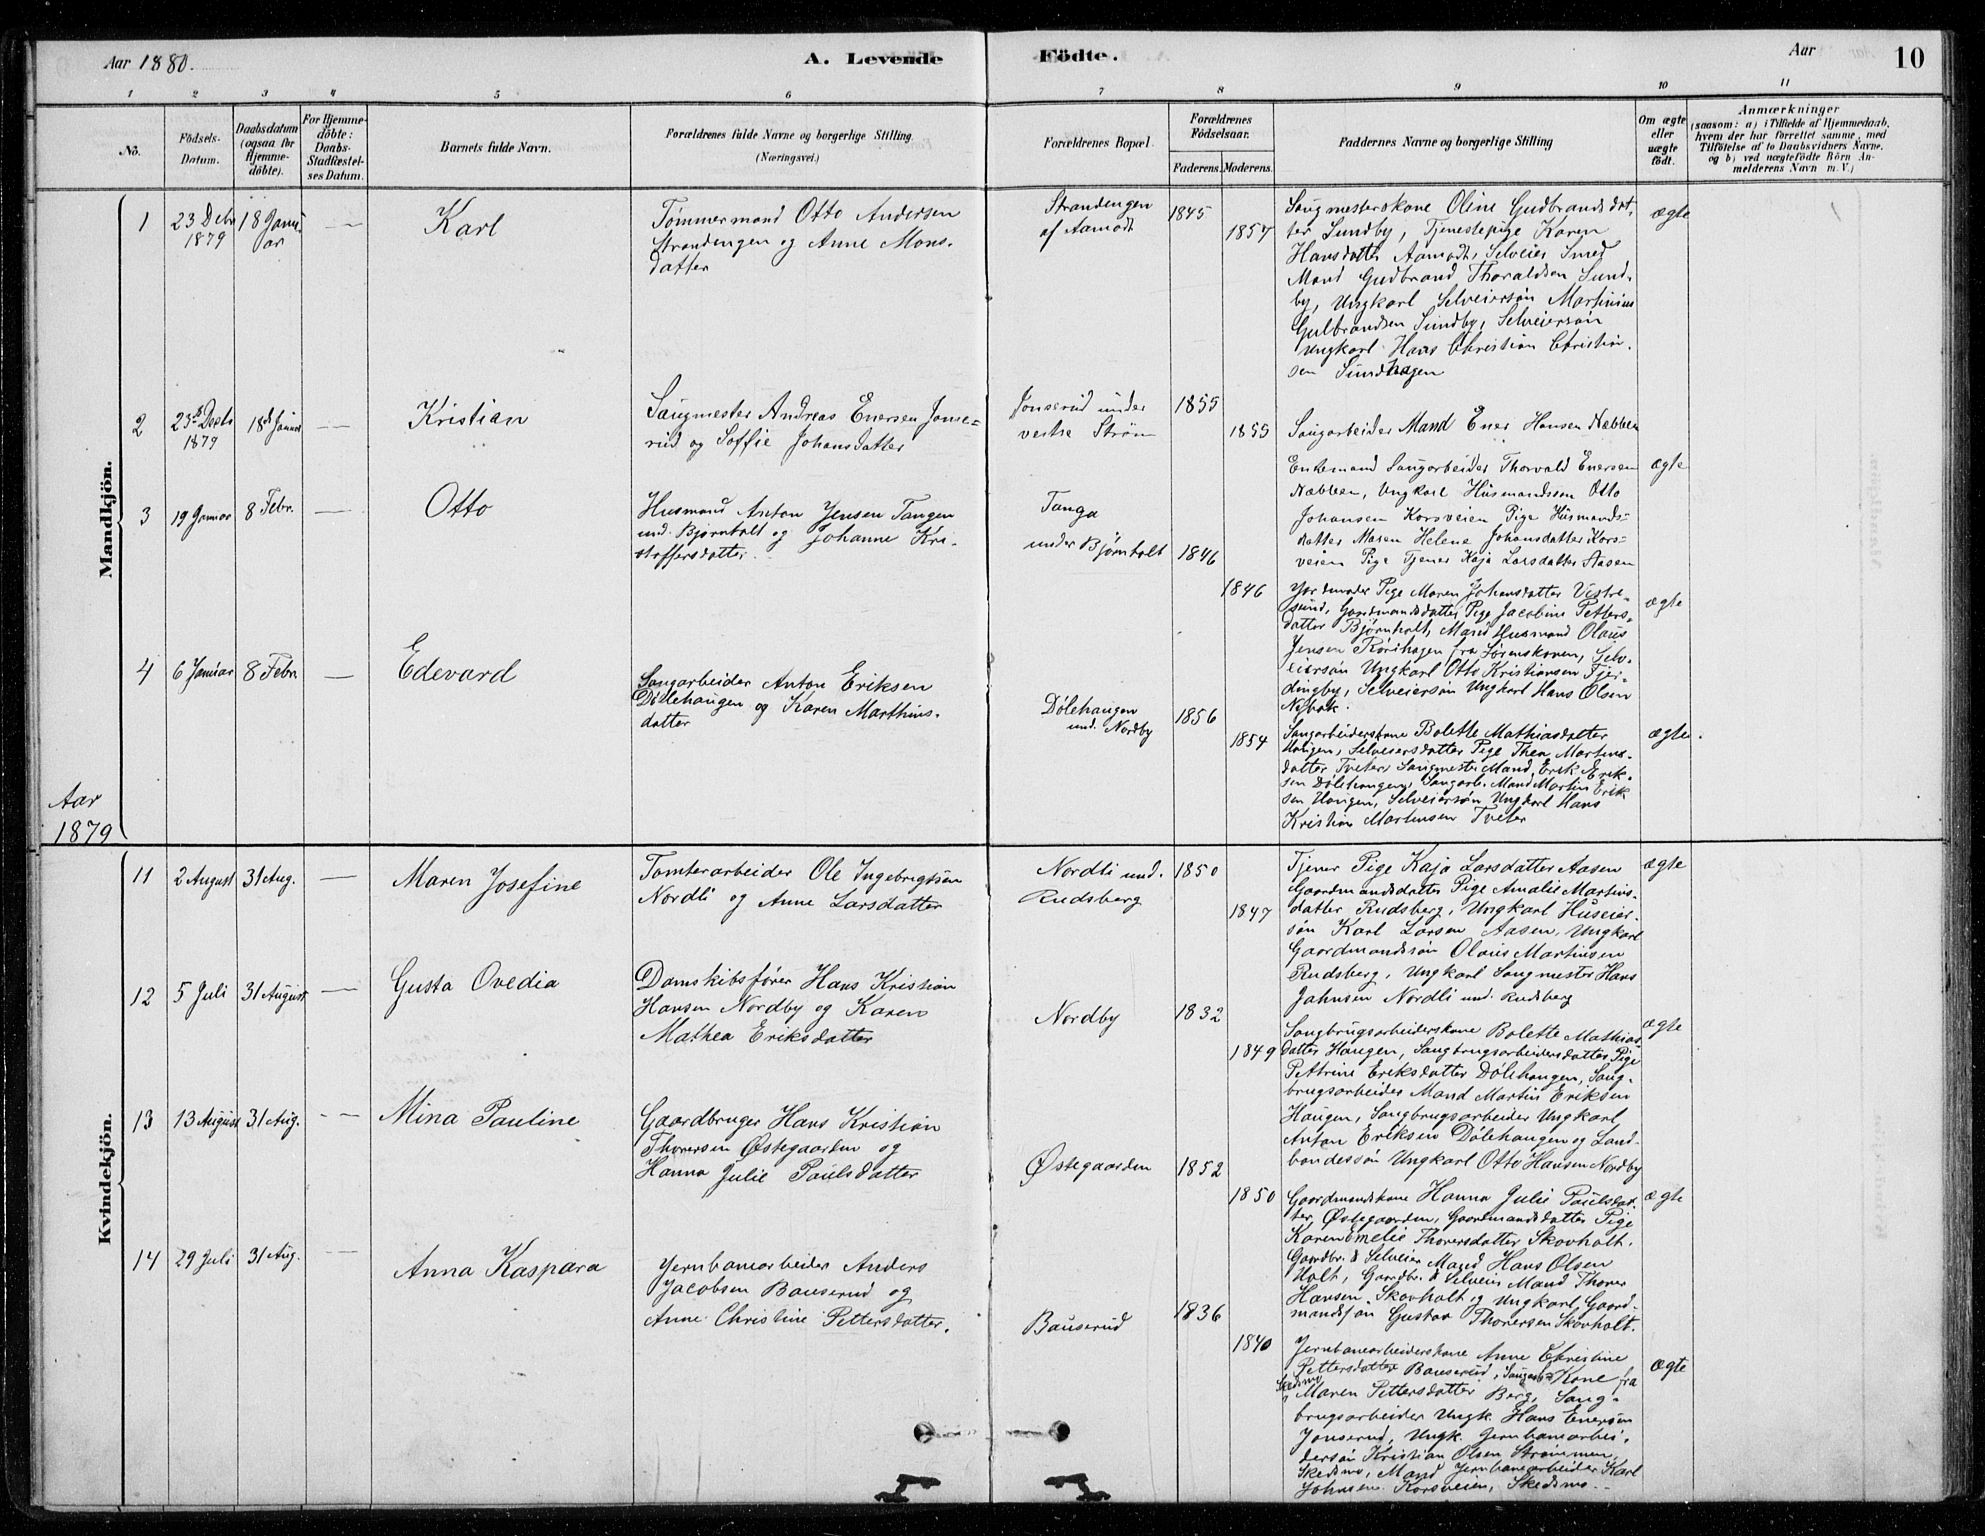 Aar 1880.
A. Levende Födte.
Aar
10
1 2 3 4 5 6 7 8 9 10 11
No.
Födsels-
Datum.
Daabsdatum
(ogsaa for
Hjemme-
döbte).
For Hjemme-
döbte:
Daabs-
Stadfæstel-
ses Datum.
Barnets fulde Navn.
Forældrenes fulde Navne og borgerlige Stilling.
(Næringsvei.)
Forældrenes Bopæl.
Forældrenes
Födselsaar.
Faderens. Moderens.
Faddernes Navne og borgerlige Stilling
Om ægte
eller
uægte
födt.
Anmærkninger
(saasom: a) i Tilfælde af Hjemmedaab,
hvem der har forrettet samme, med
Tilföielse af to Daabsvidners Navne,
og b) ved uægtefödte Börn An-
melderens Navn m. V.)
Mandkjön.
1
23 Debr
1879
18 Janu-
ar
Karl
Tømmermand Otto Andersen
Strandengen og Anne Mons-
datter
Strandengen
af Aamodt
1845
1857
Saugmesterskone Oline Gudbrandsdat-
ter Sundby, Tjenestepige Karen
Hansdatter Aamodt, Selveier Smed
Mand Gudbrand Thoraldsen Sund-
by, Ungkarl Selveiersøn Martinius
Gulbrandsen Sundby, Selveiersøn
Ungkarl Hans Christian Christian-
sen Sundhagen
ægte
2
1879
Kristian
Saugmester Andreas Enersen Jonse-
rud og Soffie Johansdatter
Jonserud under
vestre Strøm
1855
1855
Saugarbeider Mand Ener Hansen Næbben
Enkemand Saugarbeider Thorvald Enersen
Næbben, Ungkarl Husmandssøn Otto
Johansen Korsveien Pige Husmands-
datter Maren Helene Johansdatter Kors-
veien Pige Tjener Kaja Larsdatter Aasen
ægte
3
19 Januar
8 Febr.
Otto
Husmand Anton Jensen Tangen
und. Bjørnholt og Johanne Kri-
stoffersdatter
Tanga
under Bjørnholt
1846
1846
Jordmoder Pige Maren Johansdatter Vestre-
sund, Gaardmandsdatter Pige Jacobine Petters-
datter Bjørnholt, Mand Husmand Olaus
Jensen Rørihagen fra Sørenskoven, Selv-
eiersøn Ungkarl Otto Kristiansen Fjer-
dingby, Selveiersøn Ungkarl Hans Olsen
ægte
4
6 Januar
8 Febr.
Edevard
Saugarbeider Anton Eriksen
Dølehaugen og Karen Marthins-
datter
Dølehaugen
und. Nordby
1856
1854
Saugarbeiderskone Bolette Mathiasdatter
Haugen, Selveiersdatter Pige Thea Martins-
datter Tveter, Saugmester Mand Erik Erik-
sen Dølehaugen, Saugarb. Mand Martin Erik
sen Haugen, Selveiersøn Ungkarl Hans
Kristian Martinsen Tveter
ægte.
Aar
1879
Kvindekjön.
11
2 August
31 Aug.
Maren Josefine
Tomterarbeider Ole Ingebrigtsen
Nordli og Anne Larsdatter
Nordli und.
Rudsberg
1850
1847
Tjener Pige Kaja Larsdatter Aasen
Gaardmandsdatter Pige Amalie Martins-
datter Rudsberg, Ungkarl Huseier-
søn Karl Larsen Aasen, Ungkarl
Gaardmandssøn Olaus Martinsen
Rudsberg, Ungkarl Saugmester Hans
Jahnsen Nordli und. Rudsberg
ægte
12
5 Juli
31 August
Gusta Ovedia
Damskibsfører Hans Kristian
Hansen Nordby og Karen
Mathea Eriksdatter
Nordby
1832
1849
Saugbrugsarbeiderskone Bolette Mathias-
datter Haugen, Saugbrugsarbeidersdatter Pige
Pettrine Eriksdatter Dølehaugen, Saug-
brugsarbeider Mand Martin Eriksen
Haugen, Saugbrugsarbeider Ungkarl
Anton Eriksen Dølehaugen og Land-
bondessøn Ungkarl Otto Hansen Nordby
ægte
13
13 August
31 Aug.
Mina Pauline
Gaardbruger Hans Kristian
Thoversen Østegaarden og
Hanna Julie Paulsdatter
Østegaarden
1852
1850
Gaardmandskone Hanna Julie Paulsdat-
ter Østegaarden, Gaardmandsdatter Pige
Karen Emelie Thoversdatter Skovholt.
Gaardbr. & Selveier Mand Hans Olsen
Holt, Gaardbr. & Selveier Mand Thover
Hansen Skovholt og Ungkarl Gaard-
mandssøn Gustav Thoversen Skovholt.
ægte
14
29 Juli
31 Aug.
Anna Kaspara
Jernbanearbeider Anders
Jacobsen Bauserud og
Anne Christine Pettersdatter.
Bauserud
1836
1840
Jernbanearbeiderskone Anne Christine
Pettersdatter Bauserud, Saugarb. Kone fra
Skedsmo
Maren Pettersdatter Berg, Saug-
brugsarbeider Ungk. Hans Enersen
Jonserud, Ungk. Jernbanearbei-
dersøn Kristian Olsen Strømmen
Skedsmo, Mand Jernbanearbeider Karl
Johnsen Korsveien, Skedsmo.
ægte